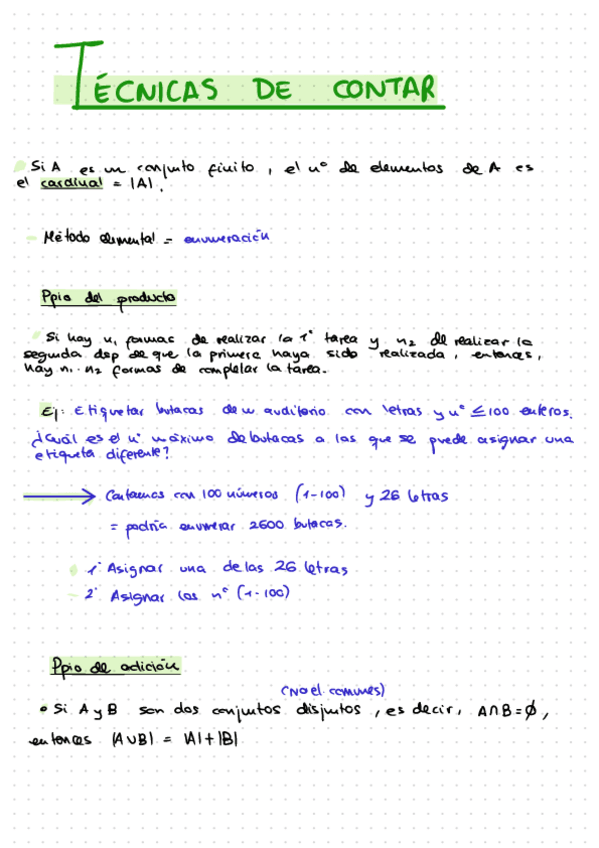 TÉCNICAS DE CONTAR
Si A es un conjunto finito, el nº de elementos de A es
el cardinal = |A|.
- Método elemental = enumeración
Ppio del producto
Si hay n₁ formas de realizar la 1ª tarea y n₂ de realizar la
segunda dsp de que la primera haya sido realizada, entonces,
hay n₁·n₂ formas de completar la tarea.
Ej: Etiquetar butacas de un auditorio con letras y nº ≤100 enteros.
¿Cuál es el nº máximo de butacas a las que se puede asignar una
etiqueta diferente?
→ Contamos con 100 números (1-100) y 26 letras
= podría enumerar 2600 butacas.
1º Asignar una de las 26 letras
- 2º Asignar los nº (1-100)
Ppio de adición
(No el. comunes)
• Si A y B son dos conjuntos disjuntos, es decir, A∩B=∅,
entonces |A∪B| = |A|+|B|